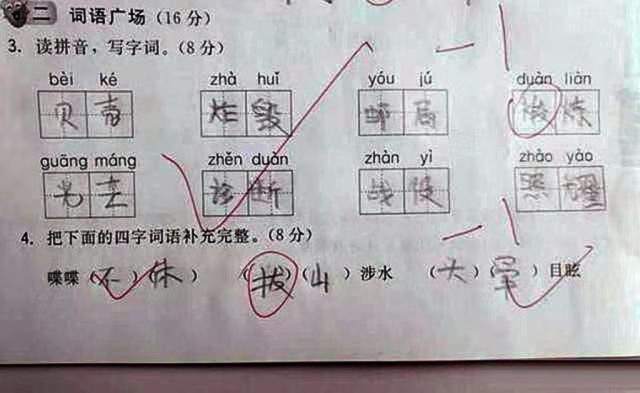 二 词语广场（16分）
3. 读拼音，写字词。（8分） -1
bèi ké zhà huǐ yóu jú duàn liàn
贝壳 炸毁 邮局 炼
guāng máng zhěn duàn zhàn yì zhào yào
光芒 诊断 战役 照耀
4. 把下面的四字词语补充完整。（8分） -1
喋喋（不）（休） （拔）（山）涉水 （）（晕）目眩